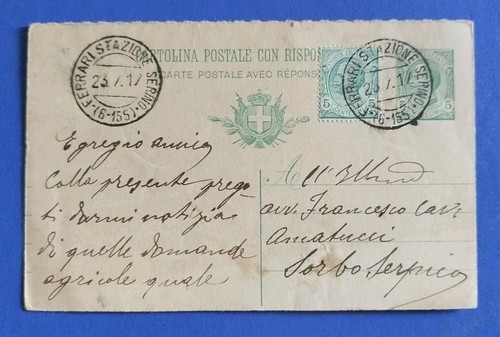 CARTOLINA POSTALE CON RISPO
CARTE POSTALE AVEC RÉPONS
FERRARI STAZIONE (SERINO)
23.7.17
(6-155)
5 5 5 5
FERRARI STAZIONE (SERINO)
23.7.17
(6-155)
Egregio amico
Colla presente prego
ti darmi notizia
di quelle domande
agricole quale
All'Illmo
avv. Francesco Cav.
Amatucci
Sorbo Serpico